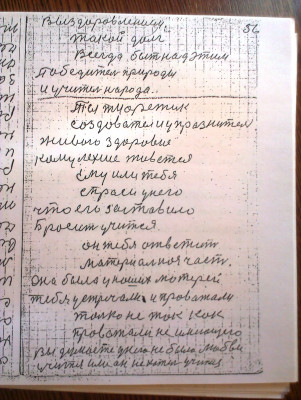 выздоровлением,
56
такой долг
всегда быт над этим
победител природы
и учител народа..
Ты туоретик
создовател и упразнител
живого здоровие
кому лехше живется
ему или тебя
спраси у него
что его заставило
бросит учится
он тебя ответит
материалная част.
она была у наших матерей
тебя устречали и проважали
толко не так как
проважали не имеющего
вы думаете у него не было любви
учится или он не хотел учится